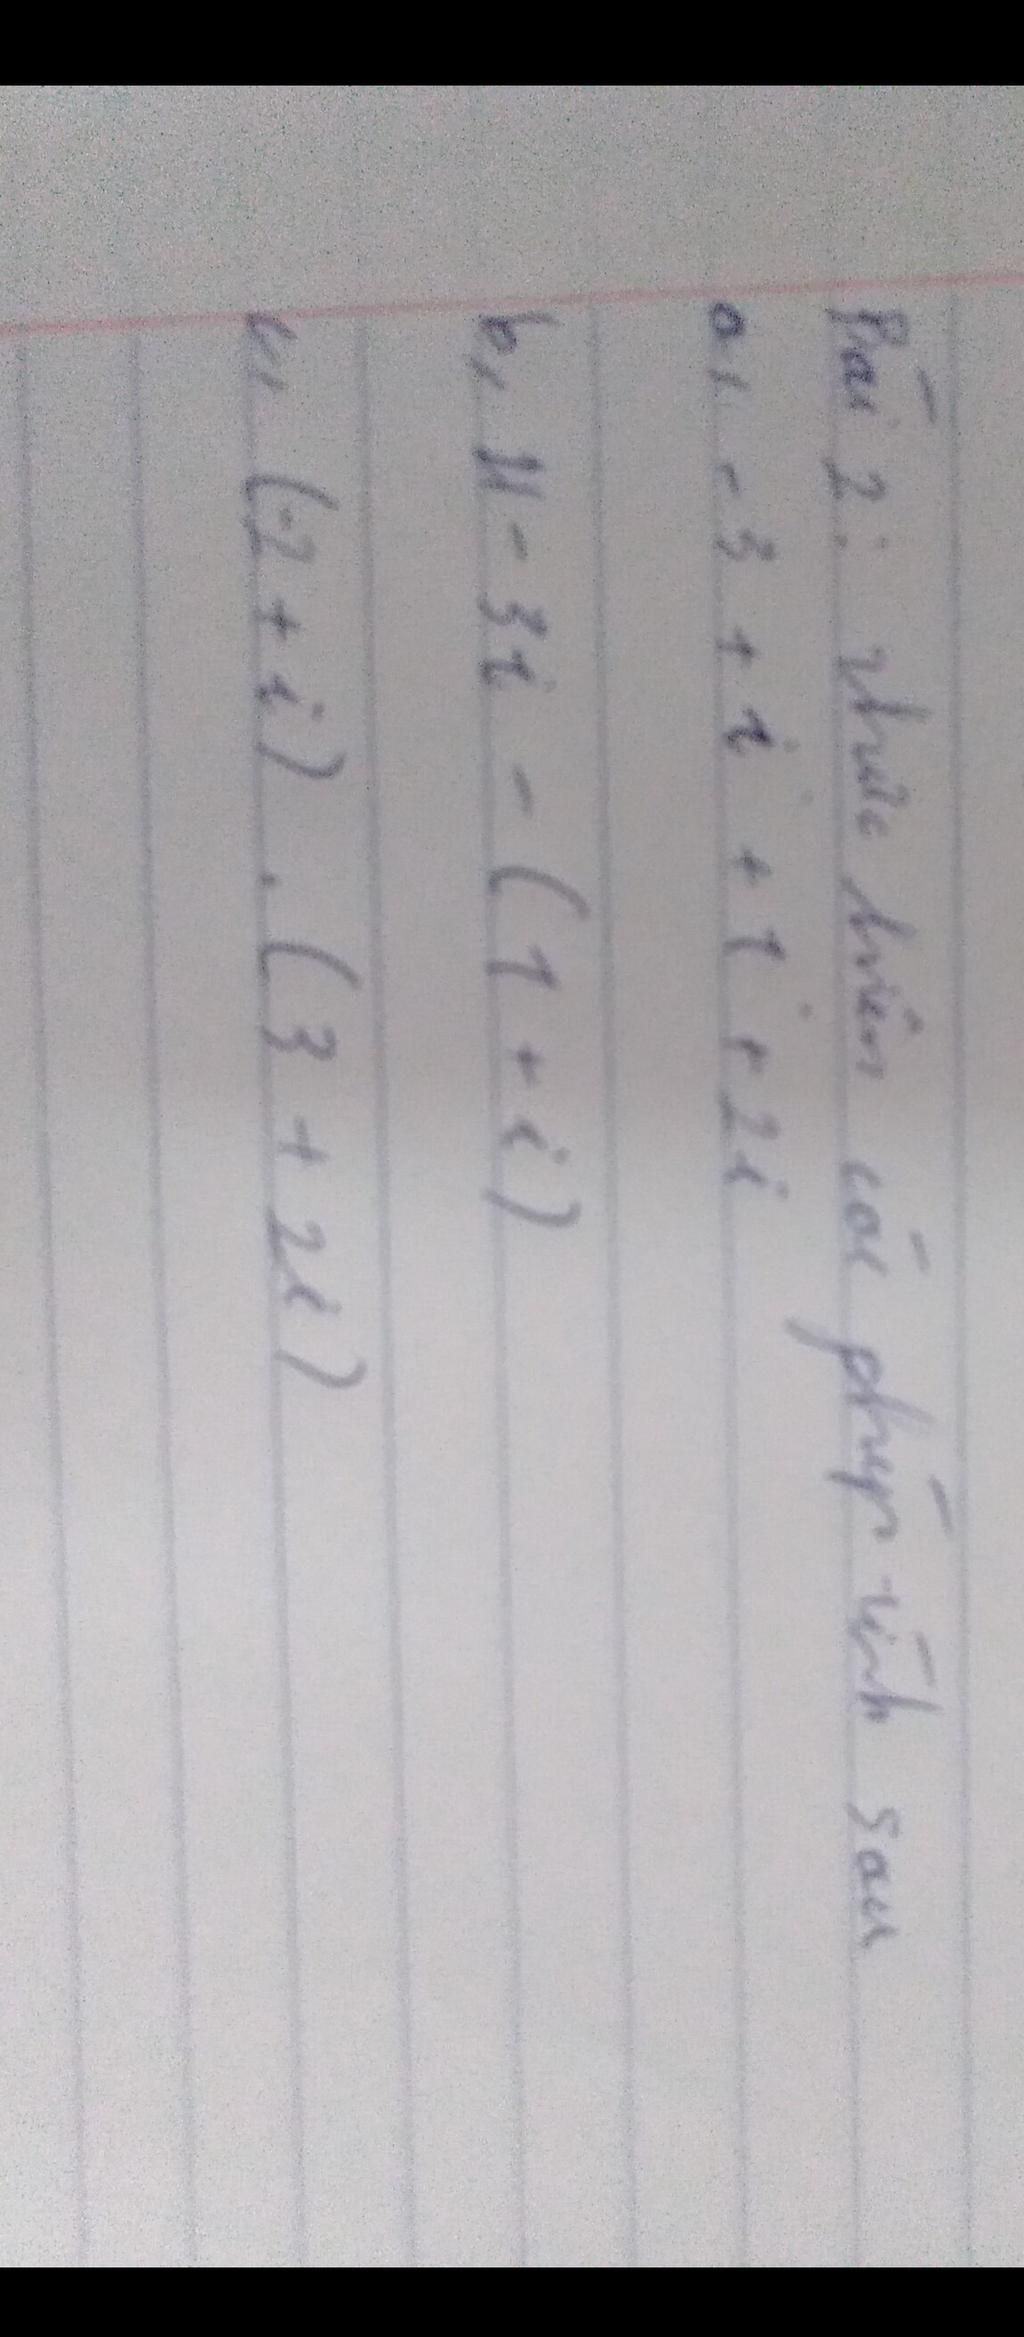 Bài 2: thực hiện các phép tính sau
a, -3 + i + 1 + 2i
b, 11 - 3i - (1 + i)
c, (-2 + i) . (3 + 2i)